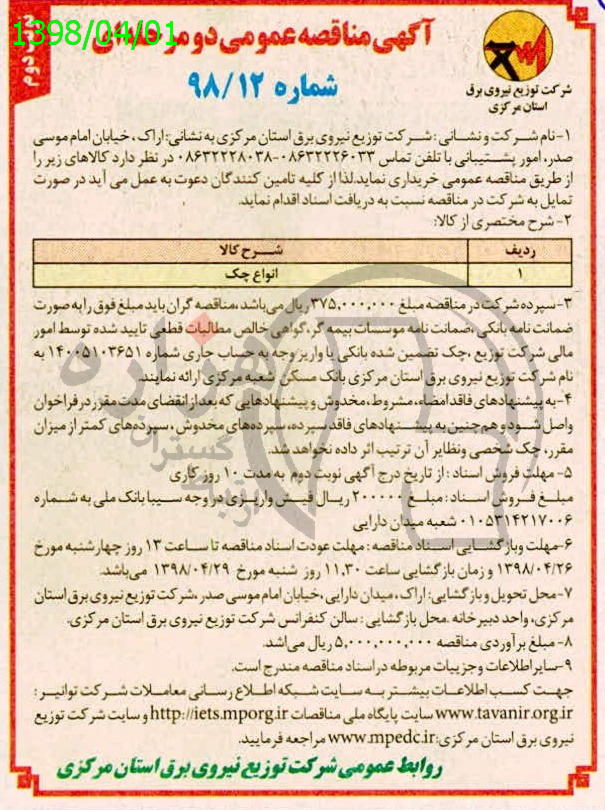 1398/04/01
نوبت دوم
آگهی مناقصه عمومی دو مرحله‌ای
شماره ۹۸/۱۲
شرکت توزیع نیروی برق
استان مرکزی
۱-نام شرکت و نشانی : شرکت توزیع نیروی برق استان مرکزی به نشانی: اراک ، خیابان امام موسی
صدر، امور پشتیبانی با تلفن تماس ۰۸۶۳۲۲۲۶۰۳۳-۰۸۶۳۲۲۲۸۰۳۸ در نظر دارد کالاهای زیر را
از طریق مناقصه عمومی خریداری نماید.لذا از کلیه تامین کنندگان دعوت به عمل می آید در صورت
تمایل به شرکت در مناقصه نسبت به دریافت اسناد اقدام نماید.
۲-شرح مختصری از کالا:
ردیف شــرح کالا
۱ انواع جک
۳-سپرده شرکت در مناقصه مبلغ ۳۷۵,۰۰۰,۰۰۰ ریال می‌باشد ،مناقصه گران باید مبلغ فوق را به صورت
ضمانت نامه بانکی ،ضمانت نامه موسسات بیمه گر،گواهی خالص مطالبات قطعی تایید شده توسط امور
مالی شرکت توزیع ،چک تضمین شده بانکی یا واریز وجه به حساب جاری شماره ۱۴۰۰۵۱۰۳۶۵۱ به
نام شرکت توزیع نیروی برق استان مرکزی بانک مسکن شعبه مرکزی ارائه نمایند.
۴-به پیشنهادهای فاقد امضاء، مشروط ،مخدوش و پیشنهادهایی که بعد از انقضای مدت مقرر در فراخوان
واصل شود و هم‌چنین به پیشنهادهای فاقد سپرده، سپرده‌های مخدوش ، سپرده‌های کمتر از میزان
مقرر، چک شخصی و نظایر آن ترتیب اثر داده نخواهد شد.
۵- مهلت فروش اسناد : از تاریخ درج آگهی نوبت دوم به مدت ۱۰ روز کاری
مبلغ فروش اسناد : مبلغ ۲۰۰۰۰۰ ریال فیش واریزی در وجه سیبا بانک ملی به شماره
۰۱۰۵۳۱۴۲۱۷۰۰۶ شعبه میدان دارایی
۶-مهلت و بازگشایی اسناد مناقصه : مهلت عودت اسناد مناقصه تا ساعت ۱۳ روز چهارشنبه مورخ
۱۳۹۸/۰۴/۲۶ و زمان بازگشایی ساعت ۱۱،۳۰ روز شنبه مورخ ۱۳۹۸/۰۴/۲۹ می‌باشد.
۷-محل تحویل و بازگشایی: اراک ، میدان دارایی ،خیابان امام موسی صدر ،شرکت توزیع نیروی برق استان
مرکزی، واحد دبیرخانه .محل بازگشایی : سالن کنفرانس شرکت توزیع نیروی برق استان مرکزی.
۸- مبلغ برآوردی مناقصه ۵,۰۰۰,۰۰۰,۰۰۰ ریال می‌اشد.
۹-سایر اطلاعات و جزییات مربوطه در اسناد مناقصه مندرج است.
جهت کسب اطلاعات بیشتر به سایت شبکه اطلاع رسانی معاملات شرکت توانیر :
www.tavanir.org.ir سایت پایگاه ملی مناقصات http://iets.mporg.ir و سایت شرکت توزیع
نیروی برق استان مرکزی:www.mpedc.ir مراجعه فرمایید.
روابط عمومی شرکت توزیع نیروی برق استان مرکزی